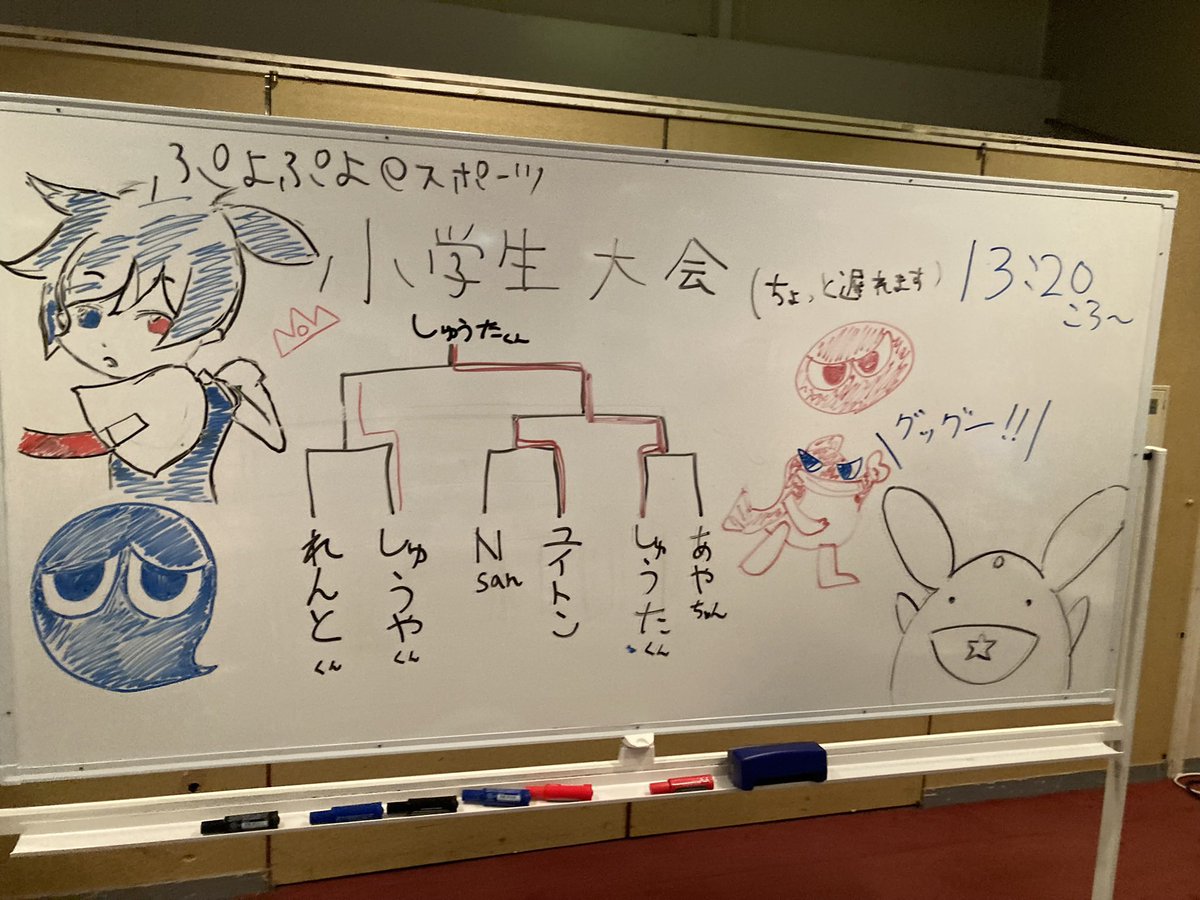 ぷよぷよeスポーツ
小学生大会 (ちょっと遅れます) 13:20
ころ〜
しゅうたくん
グッグー!!
れんとくん
しゅうやくん
N san
ユイトン
しゅうたくん
あやちゃん